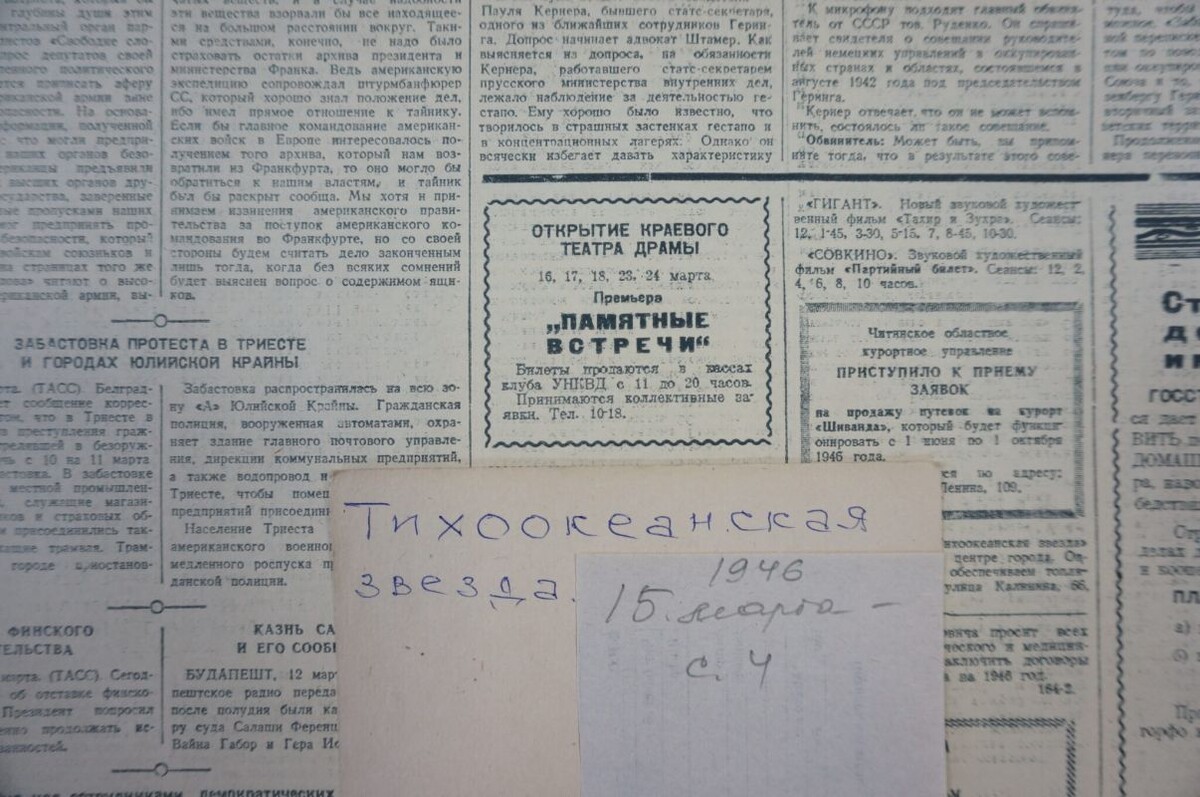 глубины душ этим
тральный орган пар-
дистов «Свободне сло-
прос депутатов своей
ленного политического
тся приписать аферу
риканской армии вне
опасности. На основа-
формации, полученной
с что могли предпри-
наших органов безо-
риканцы предъявили
высших органов дру-
государства, заверенные
ные пропусками наших
мог предпринять про-
безопасности, который
войскам союзников и
на страницах того же
читают о высо-
риканской армии, вы-
эти вещества взорвали бы все находящее-
ся на большом расстоянии вокруг. Таки-
ми средствами, конечно, не надо было
страховать остатки архива президента и
министерства Франка. Ведь американскую
экспедицию сопровождал штурмбанфюрер
СС, который хорошо знал положение дел,
ибо имел прямое отношение к тайнику.
Если бы главное командование американ-
ских войск в Европе интересовалось по-
лучением того архива, который нам воз-
вратили из Франкфурта, то оно могло бы
обратиться к нашим властям, и тайник
был бы раскрыт сообща. Мы хотя и при-
нимаем извинения американского прави-
тельства за поступок американского ко-
мандования во Франкфурте, но со своей
стороны будем считать дело законченным
лишь тогда, когда без всяких сомнений
будет выяснен вопрос о содержимом ящи-
ков.
ЗАБАСТОВКА ПРОТЕСТА В ТРИЕСТЕ
И ГОРОДАХ ЮЛИЙСКОЙ КРАЙНЫ
рта. (ТАСС). Белград-
ет сообщение коррес-
том, что в Триесте в
а преступления граж-
трелявшей в безоруж-
чь с 10 на 11 марта
астовка. В забастовке
местной промышлен-
, служащие магази-
ков и страховых об-
и присоединились так-
жащие трамвая. Трам-
городе приостанов-
Забастовка распространилась на всю зо-
ну «А» Юлийской Крайны. Гражданская
полиция, вооруженная автоматами, охра-
няет здание главного почтового управле-
ния, дирекции коммунальных предприятий,
а также водопровод и
Триесте, чтобы помеш
предприятий присоедин
Население Триеста
американского военно
медленного роспуска
данской полиции.
ФИНСКОГО
ЕЛЬСТВА
марта. (ТАСС). Сегод-
об отставке финско-
Президент попросил
енно продолжать ис-
занностей.
КАЗНЬ СА
И ЕГО СООБ
БУДАПЕШТ, 12 мар
пештское радио переда
после полудня были ка
ру суда Салаши Ференц
Вайна Габор и Гера
сотрудниками демократических
Пауля Кернера, бывшего статс-секретаря,
одного из ближайших сотрудников Герин-
га. Допрос начинает адвокат Штамер. Как
выясняется из допроса, на обязанности
Кернера, работавшего статс-секретарем
прусского министерства внутренних дел,
лежало наблюдение за деятельностью ге-
стапо. Ему хорошо было известно, что
творилось в страшных застенках гестапо и
в концентрационных лагерях. Однако он
всячески избегает давать характеристику
К микрофону подходят главный обвини-
тель от СССР тов. Руденко. Он спраши-
вает свидетеля о совещании руководите-
лей немецких управлений в оккупирован-
ных странах и областях, состоявшемся в
августе 1942 года под председательством
Геринга.
Кернер отвечает, что он не может вспом-
нить, состоялось ли такое совещание.
Обвинитель: Может быть, вы припом-
ните тогда, что в результате этого сове-
ОТКРЫТИЕ КРАЕВОГО
ТЕАТРА ДРАМЫ
16, 17, 18, 23, 24 марта
Премьера
„ПАМЯТНЫЕ
ВСТРЕЧИ“
Билеты продаются в кассах
клуба УНКВД с 11 до 20 часов.
Принимаются коллективные за-
явки. Тел. 10-18.
«ГИГАНТ». Новый звуковой художест-
венный фильм «Тахир и Зухра». Сеансы:
12, 1-45, 3-30, 5-15, 7, 8-45, 10-30.
«СОВКИНО». Звуковой художественный
фильм «Партийный билет». Сеансы: 12, 2,
4, 6, 8, 10 часов.
Читинское областное
курортное управление
ПРИСТУПИЛО К ПРИЕМУ
ЗАЯВОК
на продажу путевок на курорт
«Шиванда», который будет функци-
онировать с 1 июня по 1 октября
1946 года.
ся по адресу:
Ленина, 109.
ихоокеанская звезда»
центре города.
обеспечиваем топли-
улица Калинина, 66.
просит всех
ческого и медицин-
аключить договоры
на 1946 год.
164-2.
Тихоокеанская
звезда.
1946
15 марта –
с. 4